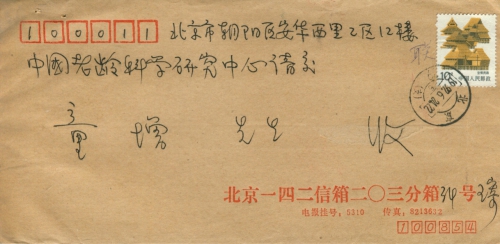 100011
北京市朝阳区安华西里乙区12楼
中國老龄科学研究中心请交
童增 先生 收
10
中国人民邮政
北京
北京一四二信箱二〇三分箱34号
电报挂号：5310 传真：8213622
100854